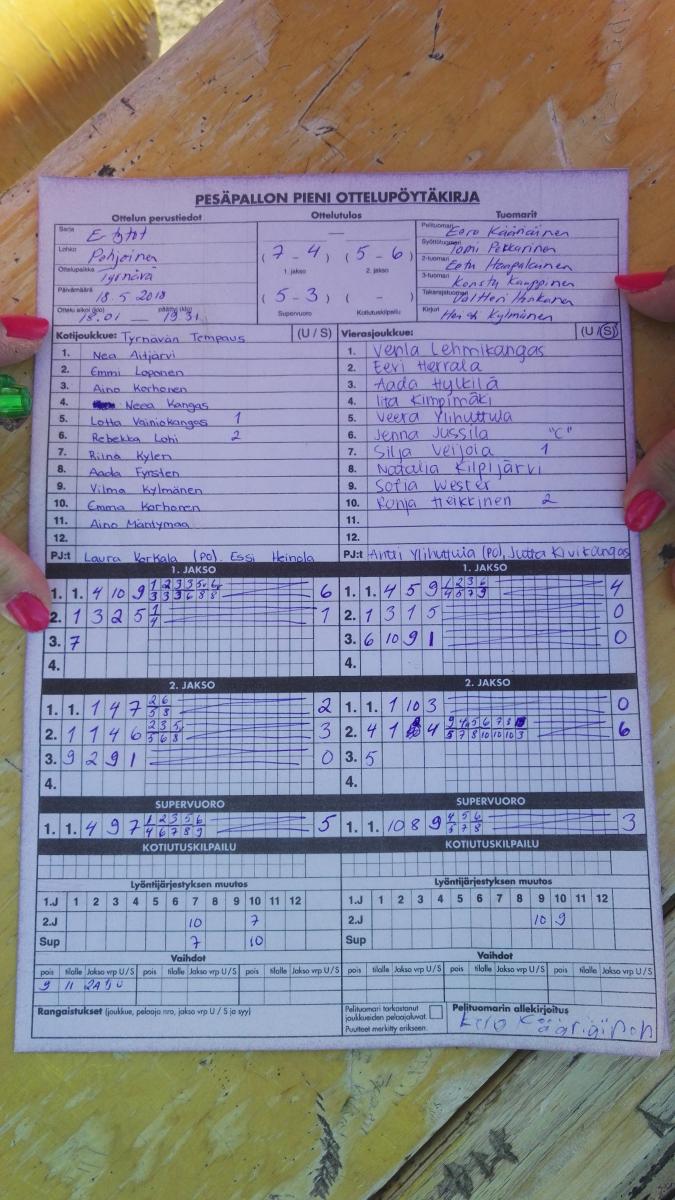 PESÄPALLON PIENI OTTELUPÖYTÄKIRJA
Ottelun perustiedot Ottelutulos Tuomarit
Sarja E-tytöt
Lohko Pohjoinen
Ottelupaikka Tyrnävä
Päivämäärä 18.5 2018
Ottelu alkoi (klo) 18.01 — päättyi (klo) 19.31
—
(7 - 4) (5 - 6)
1. jakso 2. jakso
(5 - 3) ( - )
Supervuoro Kotiutuskilpailu
Pelituomari Eero Kääriäinen
Syöttötuomari Tomi Pekkarinen
2-tuomari Eetu Haapalainen
3-tuomari Konsta Kauppinen
Takarajatuomari Valtteri Honkanen
Kirjuri Kylmänen
Kotijoukkue: Tyrnävän Tempaus (U / S)
1. Nea Aitjärvi
2. Emmi Loponen
3. Aino Korhonen
4. Neea Kangas
5. Lotta Vainiokangas 1
6. Rebekka Lohi 2
7. Riina Kylen
8. Aada Fyrsten
9. Vilma Kylmänen
10. Emma Korhonen
11. Aino Mäntymaa
12.
PJ:t Laura Korkala (PO), Essi Heinola
Vierasjoukkue: (U / S)
1. Venla Lehmikangas
2. Eevi Herrala
3. Aada Hylkilä
4. Iita Kimpimäki
5. Veera Ylihuttula
6. Jenna Jussila "C"
7. Silja Veijola 1
8. Natalia Kilpijärvi
9. Sofia Wester
10. Ronja Heikkinen 2
11.
12.
PJ:t Antti Ylihuttula (PO), Jutta Kivikangas
1. JAKSO
1. 1. 4 10 9 1 2 3 3 5 6 6
3 3 3 6 8 8
2. 1 3 2 5 1 1
4
3. 7
4.
1. JAKSO
1. 1. 4 5 9 1 2 3 6 4
4 5 7 9
2. 1 3 1 5 0
3. 6 10 9 1 0
4.
2. JAKSO
1. 1. 1 4 7 2 6 2
5 8
2. 1 1 4 6 2 3 5 3
5 6 8
3. 9 2 9 1 0
4.
2. JAKSO
1. 1. 1 10 3 0
2. 4 1 4 9 4 5 6 7 8 6
5 7 8 10 10 10 3
3. 5
4.
SUPERVUORO
1. 1. 4 9 7 1 2 3 5 6 5
4 6 7 8 9
SUPERVUORO
1. 1. 10 8 9 4 5 6 3
5 7 8
KOTIUTUSKILPAILU
KOTIUTUSKILPAILU
Lyöntijärjestyksen muutos
1.J 1 2 3 4 5 6 7 8 9 10 11 12
2.J 10 7
Sup 7 10
Lyöntijärjestyksen muutos
1.J 1 2 3 4 5 6 7 8 9 10 11 12
2.J 10 9
Sup
Vaihdot
pois tilalle Jakso vrp U / S pois tilalle Jakso vrp U / S pois tilalle Jakso vrp U / S
9 11
Vaihdot
pois tilalle Jakso vrp U / S pois tilalle Jakso vrp U / S pois tilalle Jakso vrp U / S
Rangaistukset (joukkue, pelaaja nro, jakso vrp U / S ja syy)
Pelituomari tarkastanut
joukkueiden pelaajaluvat.
Puutteet merkitty erikseen.
Pelituomarin allekirjoitus
Eero Kääriäinen